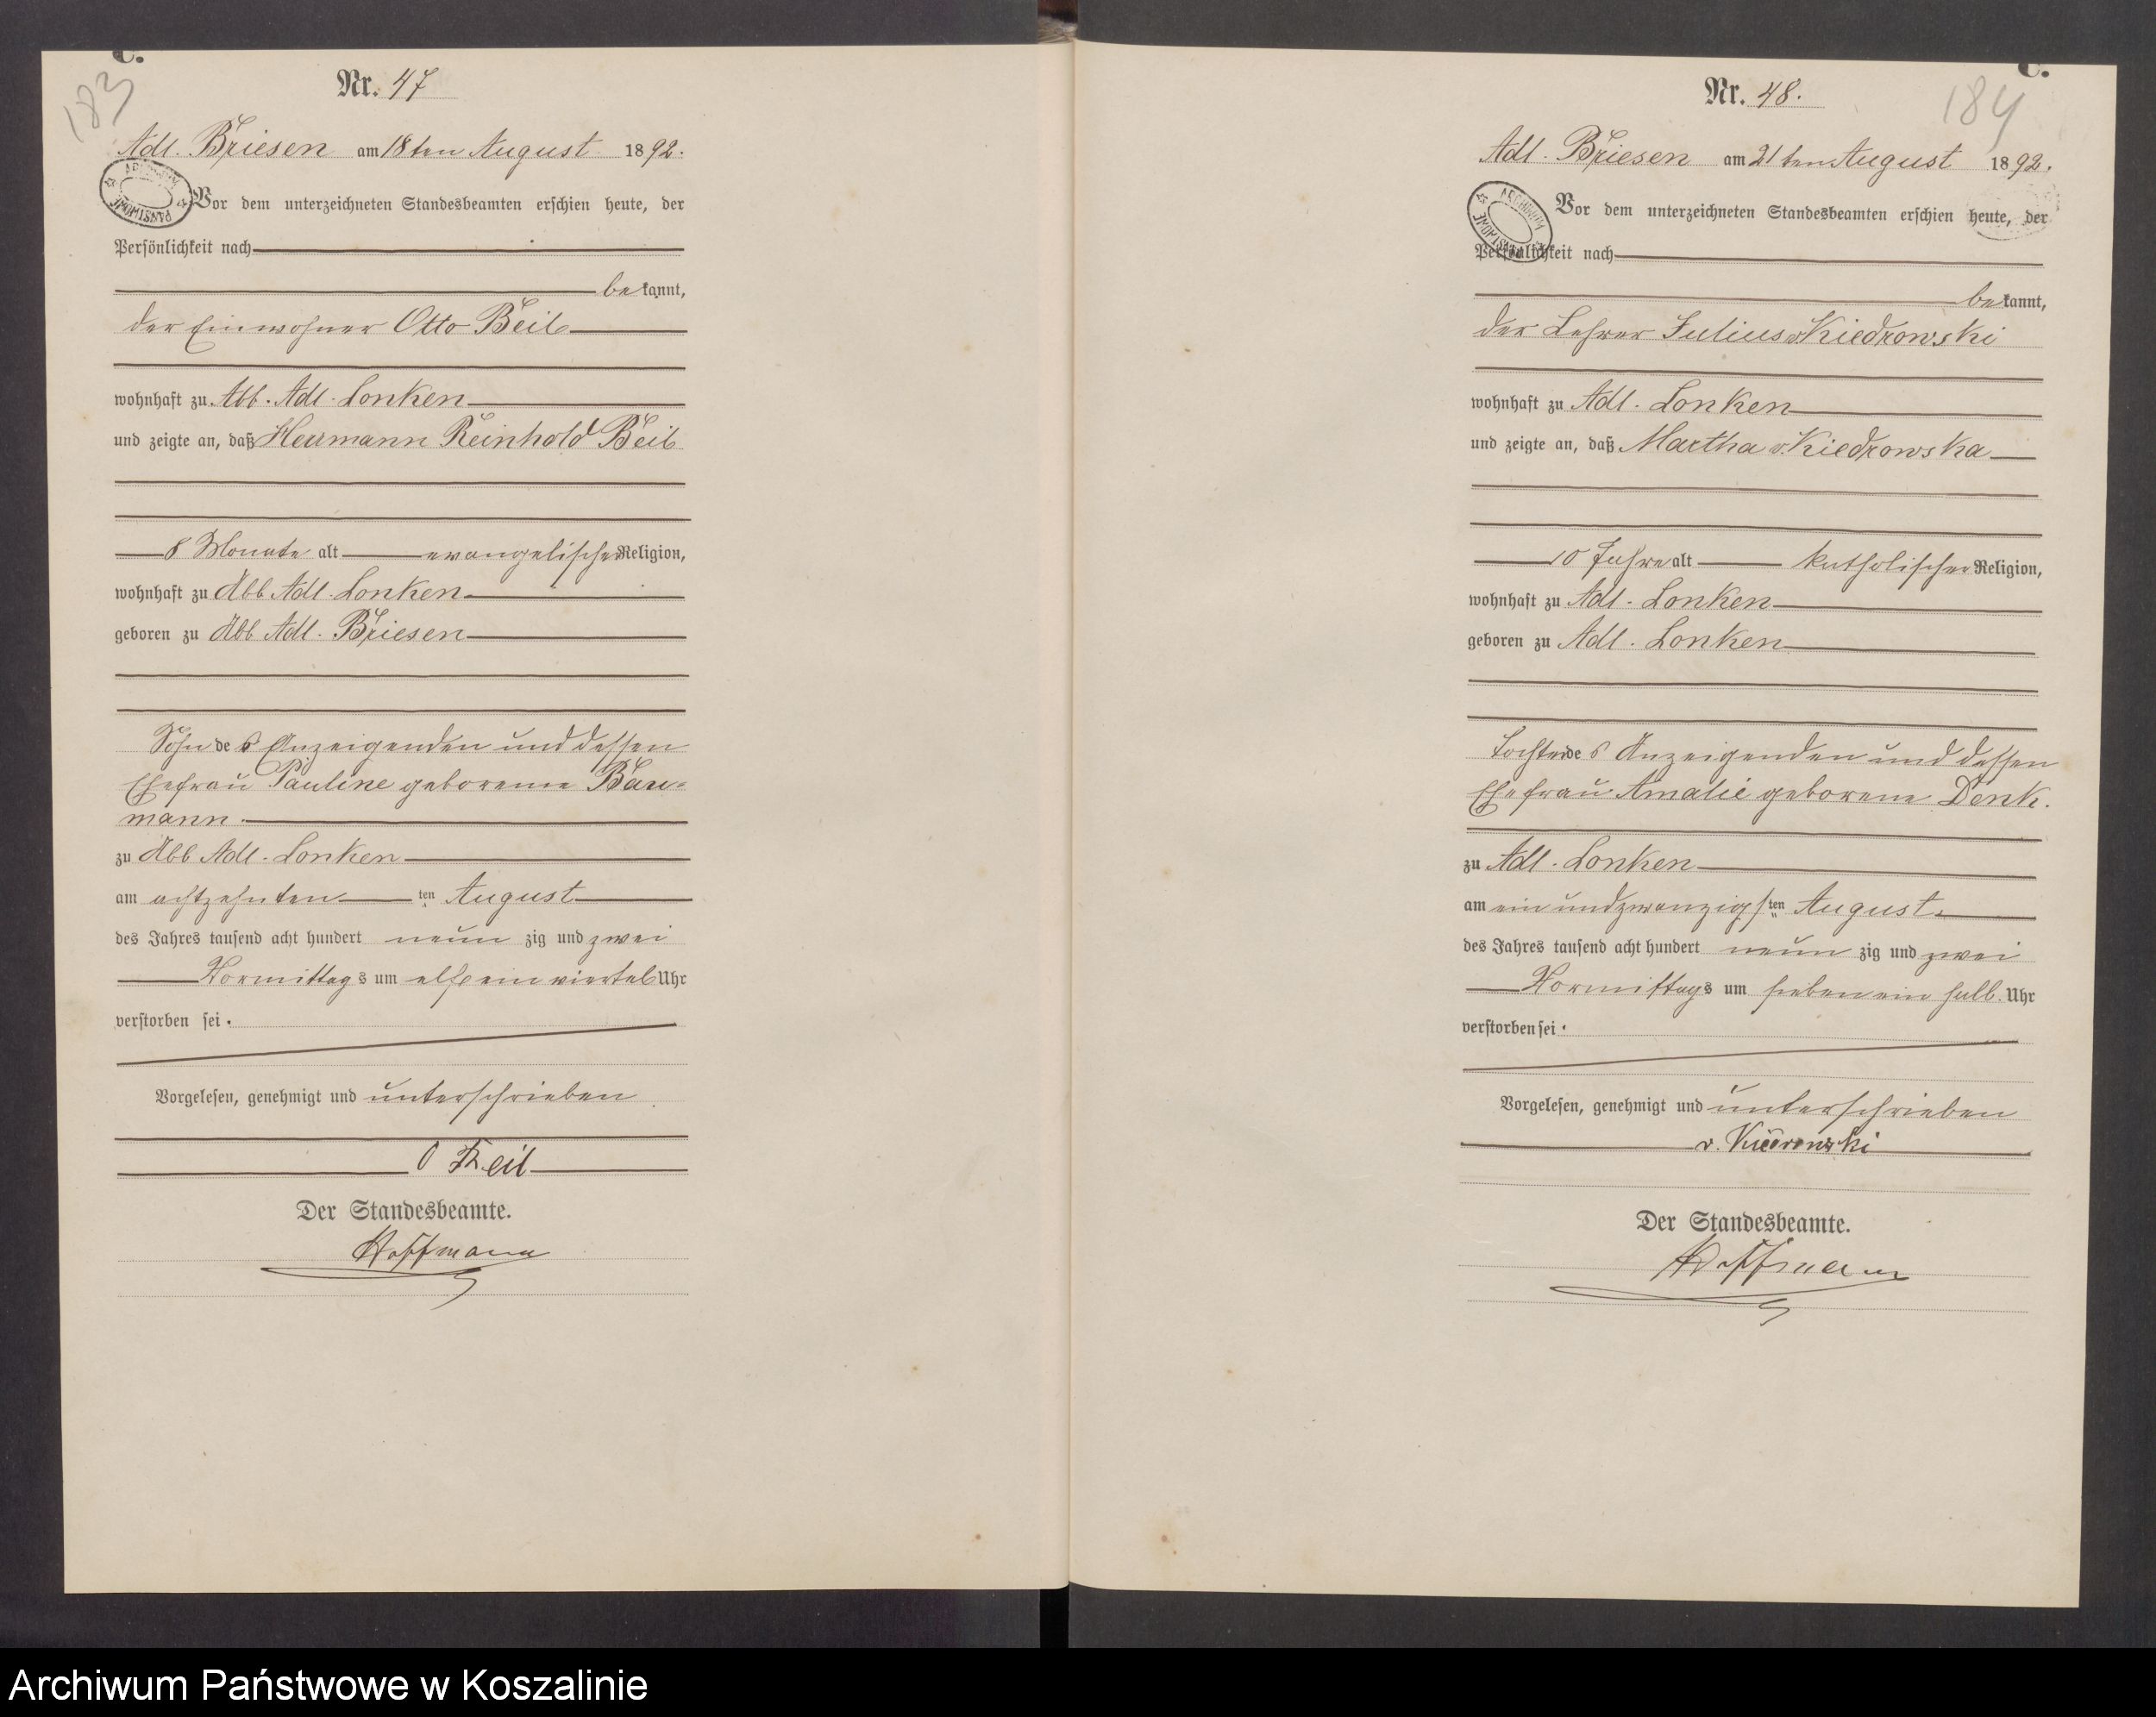 183
C.
Nr. 47
Adl. Briesen am 18ten August 1892.
Vor dem unterzeichneten Standesbeamten erschien heute, der
Persönlichkeit nach
bekannt,
der Einwohner Otto Beil
wohnhaft zu Abb. Adl. Lonken
und zeigte an, daß Hermann Reinhold Beil
8 Monate alt evangelischer Religion,
wohnhaft zu Abb Adl. Lonken
geboren zu Abb Adl. Briesen
Sohn des Anzeigenden und dessen
Ehefrau Pauline geborene Bau-
mann.
zu Abb Adl. Lonken
am achtzehnten ten August
des Jahres tausend acht hundert neun zig und zwei
Vormittags um elf ein viertel Uhr
verstorben sei.
Vorgelesen, genehmigt und unterschrieben
O Beil
Der Standesbeamte.
Hoffmann
C.
184
Nr. 48.
Adl. Briesen am 21ten August 1892.
ARCHIWUM PAŃSTWOWE
Vor dem unterzeichneten Standesbeamten erschien heute, der
Persönlichkeit nach
bekannt,
der Lehrer Julius v. Kiedrowski
wohnhaft zu Adl. Lonken
und zeigte an, daß Martha v. Kiedrowska
10 Jahre alt katholischer Religion,
wohnhaft zu Adl. Lonken
geboren zu Adl. Lonken
Tochter des Anzeigenden und dessen
Ehefrau Amalie geborene Denk.
zu Adl. Lonken
am ein und zwanzigsten August.
des Jahres tausend acht hundert neun zig und zwei
Vormittags um sieben ein halb. Uhr
verstorben sei.
Vorgelesen, genehmigt und unterschrieben
v. Kiedrowski
Der Standesbeamte.
Hoffmann
Archiwum Państwowe w Koszalinie